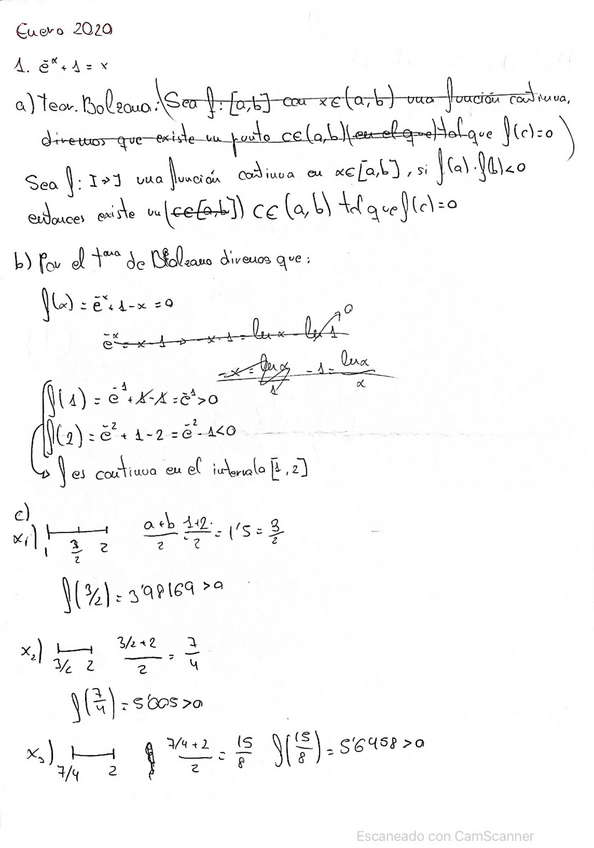 Enero 2020
1. e^-x + 1 = x
a) Teor. Bolzano: (Sea f: [a,b] con x∈(a,b) una función continua,
diremos que existe un punto c∈(a,b) (en el que) tal que f(c)=0)
Sea f: I→J una función continua en x∈[a,b], si f(a)·f(b)<0
entonces existe un (c∈[a,b]) c∈(a,b) tal que f(c)=0
b) Por el tema de Bolzano diremos que:
f(x) = e^-x + 1 - x = 0
e^-x = x-1 → -x·1 = ln x - ln 1 0
-x = ln x / 1 -1 = ln x / x
f(1) = e^-1 + 1 - 1 = e^-1 > 0
f(2) = e^-2 + 1 - 2 = e^-2 - 1 < 0
f es continua en el intervalo [1,2]
c)
x₁) 1 3/2 2 a+b/2 1+2/2 = 1'5 = 3/2
f(3/2) = 3'98169 > 0
x₂) 3/2 2 3/2+2/2 = 7/4
f(7/4) = 5'005 > 0
x₃) 7/4 2 7/4+2/2 = 15/8 f(15/8) = 5'6458 > 0
Escaneado con CamScanner